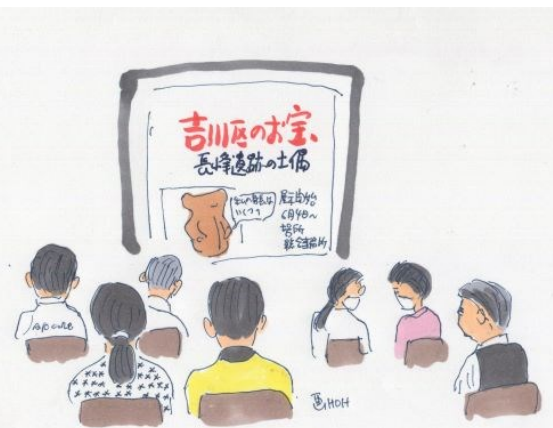 吉川区のお宝、
長峰遺跡の土偶
私の身長は
いくつ?
展示開始
6月4日〜
場所
総合事務所
画、HOH